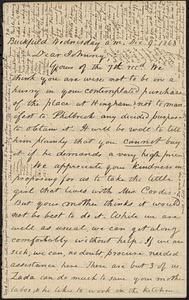 Buckfield Wednesday a.m. Dec. 9, 1868
Dear Johnny,
Yours of the 7th rec'd. We
think you are wise not to be in a
hurry in your contemplated purchase
of the place at Hingham & not to man-
ifest to Philbrick any decided purpose
to obtain it. It will be well to tell
him plainly that you cannot buy
it if he demands a very high price.
We appreciate your kindness in
proposing for us to take the little
girl that lives with Mrs
But your mother thinks it would
not be best to do it. While we are
well as usual, we can get along
comfortably without help. If we are
sick, we can no doubt procure needed
assistance here. There are but 3 of us.
Zada can do much to save you mother
labor, & she likes to work in the kitchen